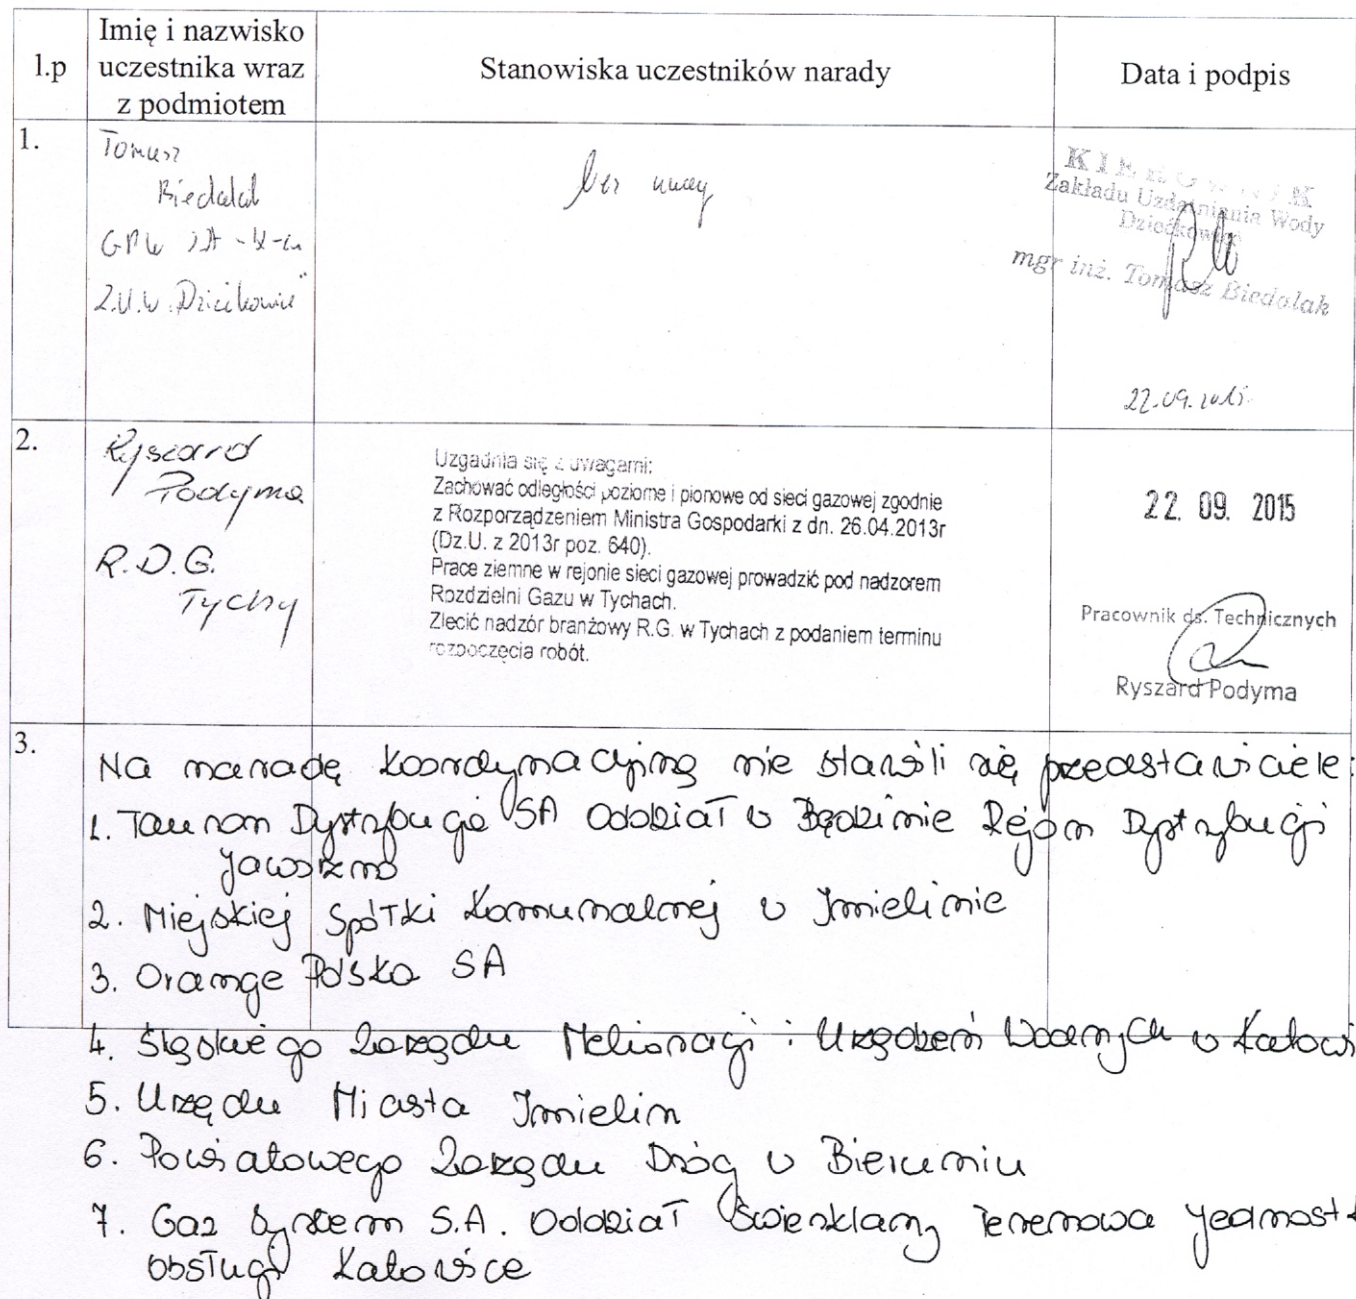 l.p
Imię i nazwisko
uczestnika wraz
z podmiotem
Stanowiska uczestników narady
Data i podpis
1.
Tomasz
Biedalak
GPW S.A. -
Z.U.W. "Dziećkowice"
bez uwag
KIEROWNIK
Zakładu Uzdatniania Wody
Dziećkowice
mgr inż. Tomasz Biedalak
22.09.2015
2.
Ryszard
Podyma
R.D.G.
Tychy
Uzgadnia się z uwagami:
Zachować odległości poziome i pionowe od sieci gazowej zgodnie
z Rozporządzeniem Ministra Gospodarki z dn. 26.04.2013r
(Dz.U. z 2013r poz. 640).
Prace ziemne w rejonie sieci gazowej prowadzić pod nadzorem
Rozdzielni Gazu w Tychach.
Zlecić nadzór branżowy R.G. w Tychach z podaniem terminu
rozpoczęcia robót.
22. 09. 2015
Pracownik ds. Technicznych
Ryszard Podyma
3.
Na naradę koordynacyjną nie stawili się przedstawiciele:
1. Tauron Dystrybucja SA Oddział w Będzinie Rejon Dystrybucji
Jaworzno
2. Miejskiej Spółki Komunalnej w Imielinie
3. Orange Polska SA
4. Śląskiego Zarządu Melioracji i Urządzeń Wodnych w Katowi
5. Urzędu Miasta Imielin
6. Powiatowego Zarządu Dróg w Bieruniu
7. Gaz System S.A. Oddział Świerklany Terenowa Jednost
obsługi Katowice